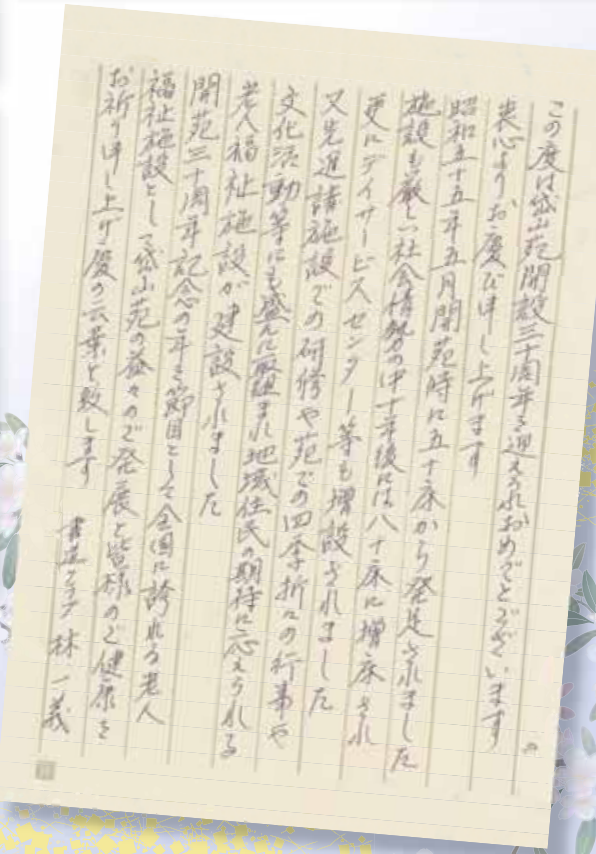 この度は岱山苑開設三十周年を迎えられおめでとうございます
衷心よりお慶び申し上げます
昭和五十五年五月開苑時に五十床から発足されました
施設も厳しい社会情勢の中十年後には八十床に増床され
更にデイサービスセンター等も増設されました
又先進諸施設での研修や苑での四季折々の行事や
文化活動等にも盛んに取組まれ地域住民の期待に応えられる
老人福祉施設が建設されました
開苑三十周年記念の年を節目として全国に誇れる老人
福祉施設として岱山苑の益々のご発展と皆様のご健康を
お祈り申し上げ慶の言葉と致します
書道クラブ 林 一義